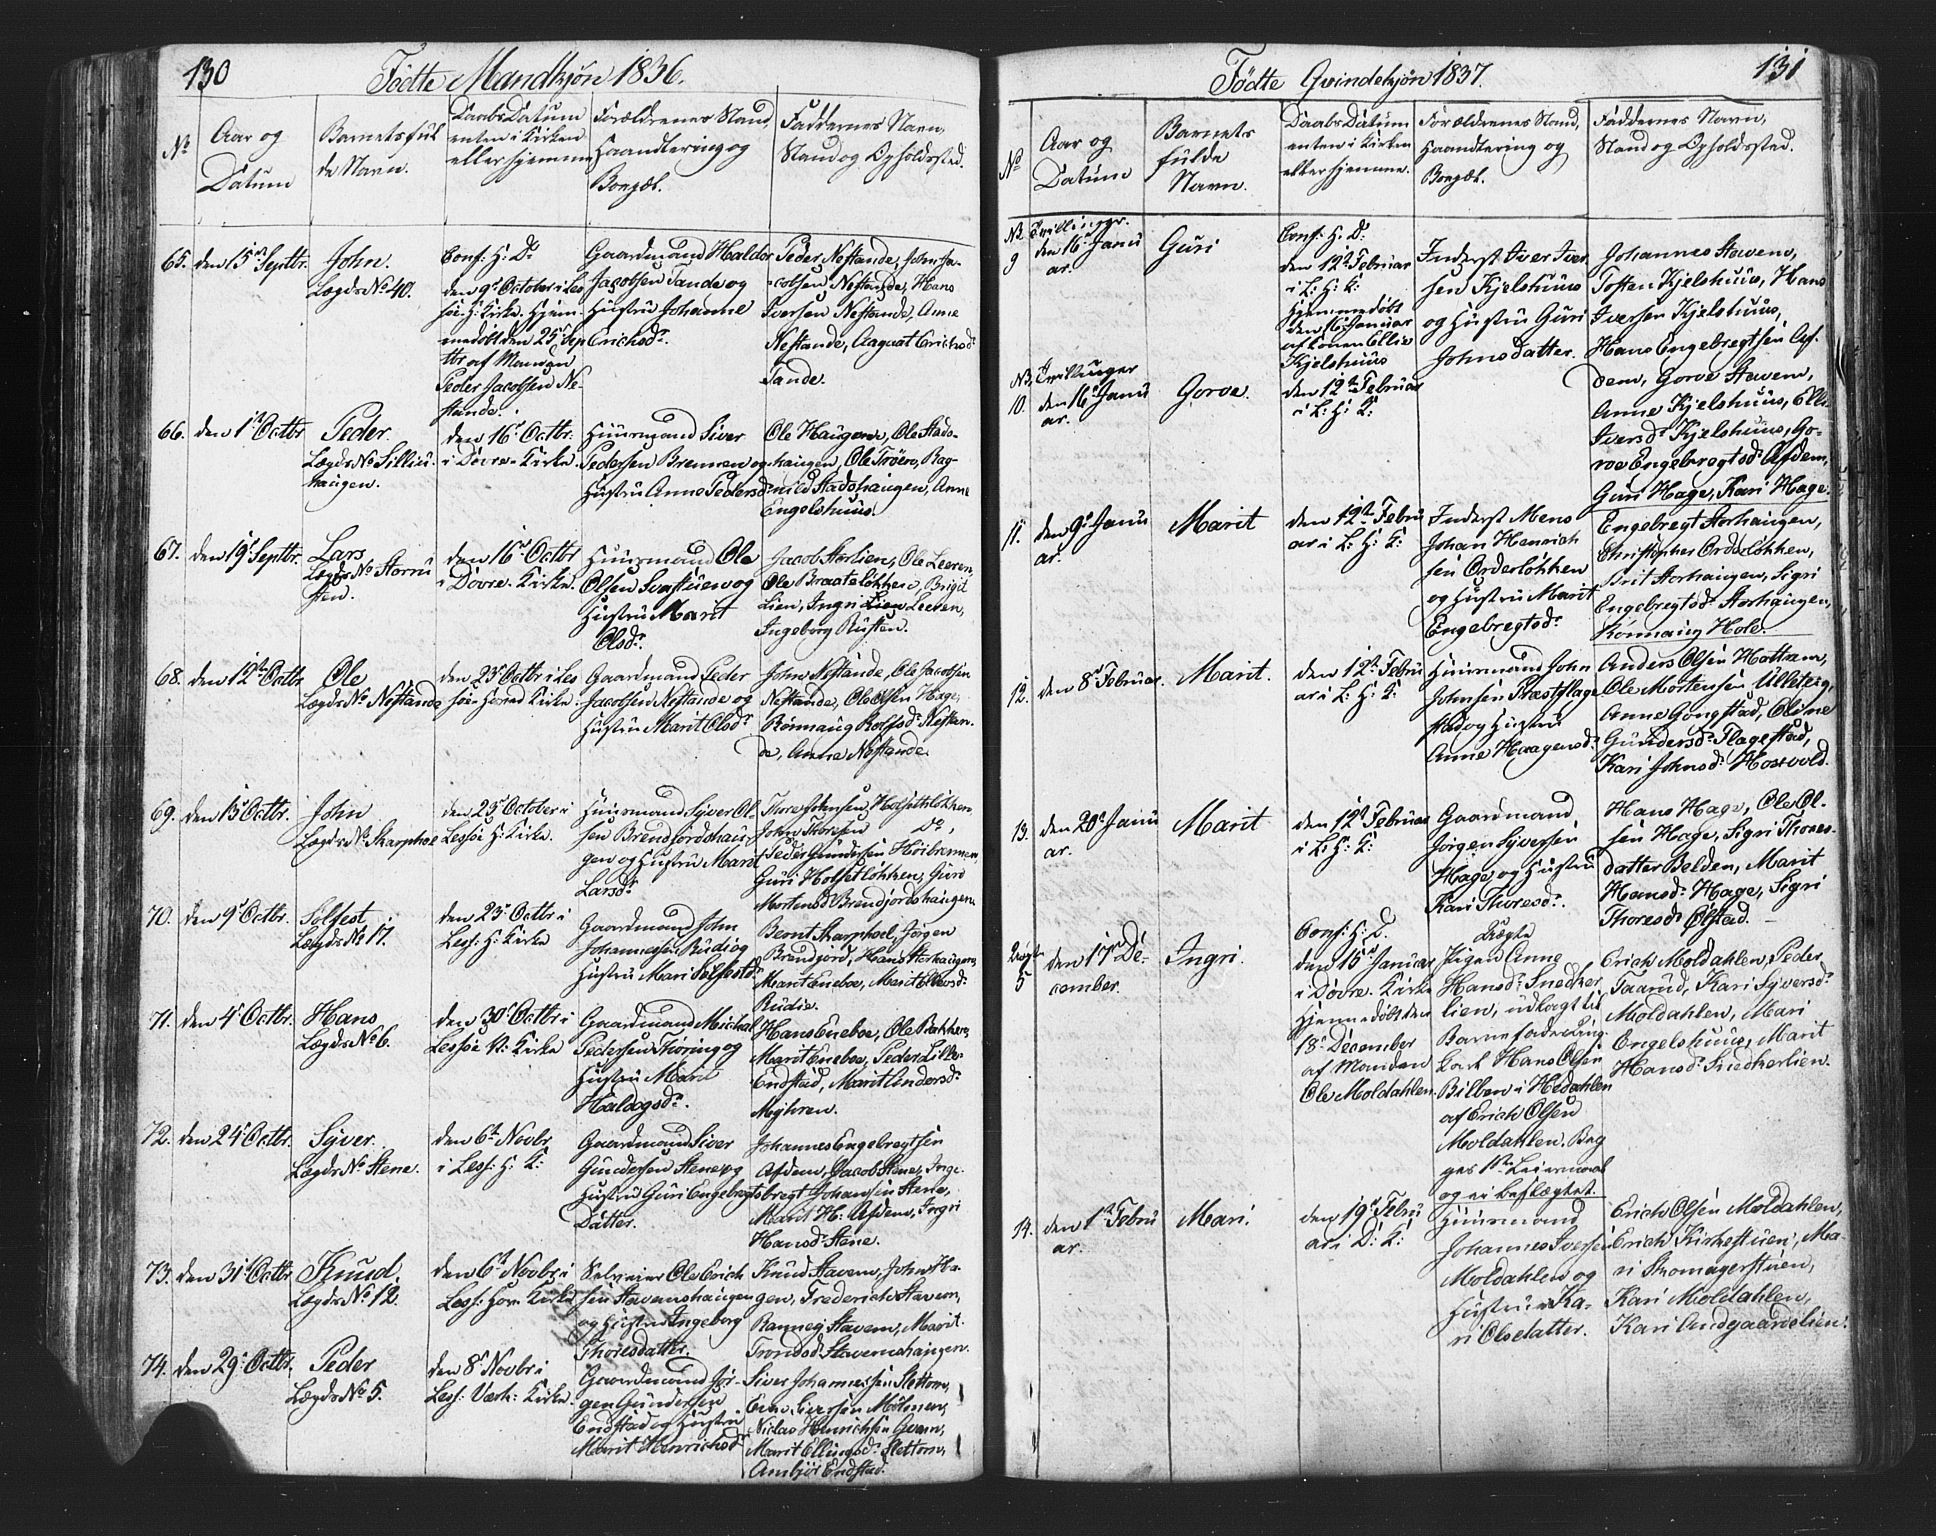 130
Födte Mandkjön 1836.
No
Aar og
Datum
Barnets ful
de Navn.
Daabs Datum
enten i Kirken
eller hjemme
Forældrenes Stand,
Haandtering og
Bopæl.
Faddernes Navn,
Stand og Opholdssted.
65.
den 15de Septbr.
John.
Lægds No 40.
Conf: H: D:
den 9de October i Les
söe H: Kirke. Hjem
medöbt den 25de Sep
tbr af Manden
Peder Jacobsen Ne
stande.
Gaardmand Haldor
Jacobsen Tande og
Hustru Johanne
Erichsdr.
Peder Nestande, John Ja-
cobsen Nestande, Hans
Iversen Nestande, Anne
Nestande, Aagaat Erichsdr
Tande.
66.
den 1ste Octbr
Peder.
Lægds No Lilliu-
haugen.
den 16de Octbr:
i Dovre-Kirke.
Huusmand Siver
Pedersen Brennen og
Hustru Anne Pedersdr
Ole Haugen, Ole Stads-
haugen, Ole Tröen, Rag-
nild Stadshaugen, Anne
Engelshuus.
67.
den 19de Septbr.
Lars
Lægds No Storru
sten.
den 16de Octbr
i Dovre-Kirke.
Huusmand Ole
Olsen Svastuen og
Hustru Marit
Olsdr.
Jacob Storlien, Ole Leeren,
Ole Braatelökken, Brigit
Lien, Ingri Lien Leeren,
Ingeborg Rusten.
68.
den 12te Octbr
Ole
Lægds No Nestande
den 23de Octbr i Les
söe Hoved Kirke.
Gaardmand Peder
Jacobsen Nestande og
Hustru Marit Olsdr.
John Nestande, Ole Jacobsen
Nestande, Ole Olsen Hage,
Rönnaug Rolfsdr Nestan-
de, Anne Nestande.
69.
den 13de Octbr.
John
Lægds No Skarphol
den 23de October i
Lessöe H: Kirke.
Huusmand Syver Ol-
sen Brendjordshau-
gen og Hustru Marit
Larsdr
Thore Johnsen, Holsetlökken
John Thoresen Do,
Peder Gundersen Höibrennen,
Guri Holsetlökken, Guri
Mortensdr Brendjordshaugen.
70.
den 9de Octbr.
Solfest
Lægds No 17.
den 23de Octbr i
Less: H: Kirke
Gaardmand John
Johannessen Rudi og
Hustru Mari Solfestdr.
Bernt Skarphol, Jörgen
Brendjord, Hans Storhaugen,
Marit Eneboe, Marit Ellevsdr.
Rudie.
71.
den 4de Octbr.
Hans
Lægds No 6.
den 30te Octbr i
Lessöe V: Kirke
Gaardmand Michel
Pedersen Thoring og
Hustru Marit
Haldorsdr.
Hans Eneboe, Ole Bakken,
Marit Eneboe, Peder Lille-
Endstad, Marit Andersdr.
Myhren.
72.
den 24de Octbr.
Syver.
Lægds No Stene.
den 6te Novbr
i Less: H: K:
Gaardmand Siver
Gundersen Stene og
Hustru Guri Engebregts
Datter.
Johannes Engebregtsen
Asdem, Jacob Stene, Inge-
bregt Johansen Stene,
Marit H: Asdem, Ingri
Hansdr Stene.
73.
den 31te Octbr
Knud.
Lægds No 12.
den 6te Novbr i
Less: Hov: Kirke
Selveier Ole Erich
sen Stavemshaugen
og Hustru Ingeborg
Thoresdatter.
Knud Stavem, John Ha-
gen, Frederich Stavem,
Ranneg Stavem, Marit
Trondsdr Stavemshaugen.
74.
den 29de Octbr.
Peder
Lægds No 5.
den 8de Novbr i
Less: Værk: Kirke.
Gaardmand Jör-
gen Gundersen
Endstad og Hustru
Marit Henrichsdr
Siver Johannessen Slettom,
Even Iversen Mölmen,
Niclas Henrichsen Gven,
Marit Ellingsdr. Slettom,
Ambjör Endstad.
131
Födte Qvindekjön 1837.
No
Aar og
Datum
Barnets
fulde
Navn.
Daabs Datum
enten i Kirken
eller hjemme.
Forældrenes Stand,
Haandtering og
Bopæl.
Faddernes Navn,
Stand og Opholdssted.
No
9
Tvillinger.
den 16de Janu
ar.
Guri
Conf: H: D:
den 12te Februar
i L: H: K:
Hjemmedöbt
den 16de Januar
af Konen Ellie
Kjelshuus
Inderst Iver Iver
sen Kjelshuus
og Hustru Guri
Johnsdatter.
Johannes Stavem,
Tosten Kjelshuus, Hans
Iversen Kjelshuus,
Hans Engebregtsen As-
dem, Gorve Stavem,
Anne Kjelshuus, Elli
Iversdr Kjelshuus, Go-
rve Engebregtsdr Asdem,
Guri Hage, Kari Hage.
No
10.
Tvillinger
den 16de Janu
ar.
Gorve.
den 12te Februar
i L: H: K:
11.
den 9de Janu
ar.
Marit
den 12te Febru
ar i L: H: K:
Inderst Mons
Johan Henrich
sen Orderlökken
og Hustru Marit
Engebregtsdr.
Engebregt Storhaugen,
Christopher Orderlökken,
Brit Storhaugen, Sigri
Engebregtsdr Storhaugen,
Rönnaug Hole.
12.
den 8de Februar.
Marit.
den 12te Febru
ar i L: H: K:
Huusmand John
Johnsen Præstflage
stad og Hustru
Anne Haagensdr.
Anders Olsen Hattrem,
Ole Mortensen Ulleberg,
Anne Gongstad, Oline
Gundersdr Flagestad,
Kari Johnsdr Hosvold.
13.
den 20de Janu
ar.
Marit
den 12te Februar
i L: H: K:
Gaardmand
Jörgen Syversen
Hage og Hustru
Kari Thoresdr.
Hans Hage, Ole Ol-
sen Hage, Sigri Thores-
datter Belden, Marit
Hansdr Hage, Sigri
Thoresdr Ölstad.
Uægte
5
den 17de De-
cember.
Ingri.
Conf: H: D.
den 15de Januar
i Dovre-Kirke
Hjemmedöbt den
18de December
af Manden
Ole Moldahlen.
Uægte
Pigen Anne
Hansdr Snedker
lien, udlagt til
Barnefader Ung-
karl Hans Olsen
Bilben i Hedahlen
af Erich Olsen
Moldahlen. Beg
ges 1ste Leiermaal
og ei beslægtet.
Erich Moldahlen, Peder
Taarud, Kari Syversdr.
Moldahlen, Mari
Engelshuus, Marit
Hansdr Snedkerlien.
14.
den 1ste Febru
ar.
Mari.
den 19de Febru
ar i D: K:
Huusmand
Johannes Iversen
Moldahlen og
Hustru Ka-
ri Olsdatter.
Erich Olsen Moldahlen,
Erich Kirkestuen, Ma-
ri Skomagerstuen,
Kari Moldahlen,
Kari Andgaardslien.